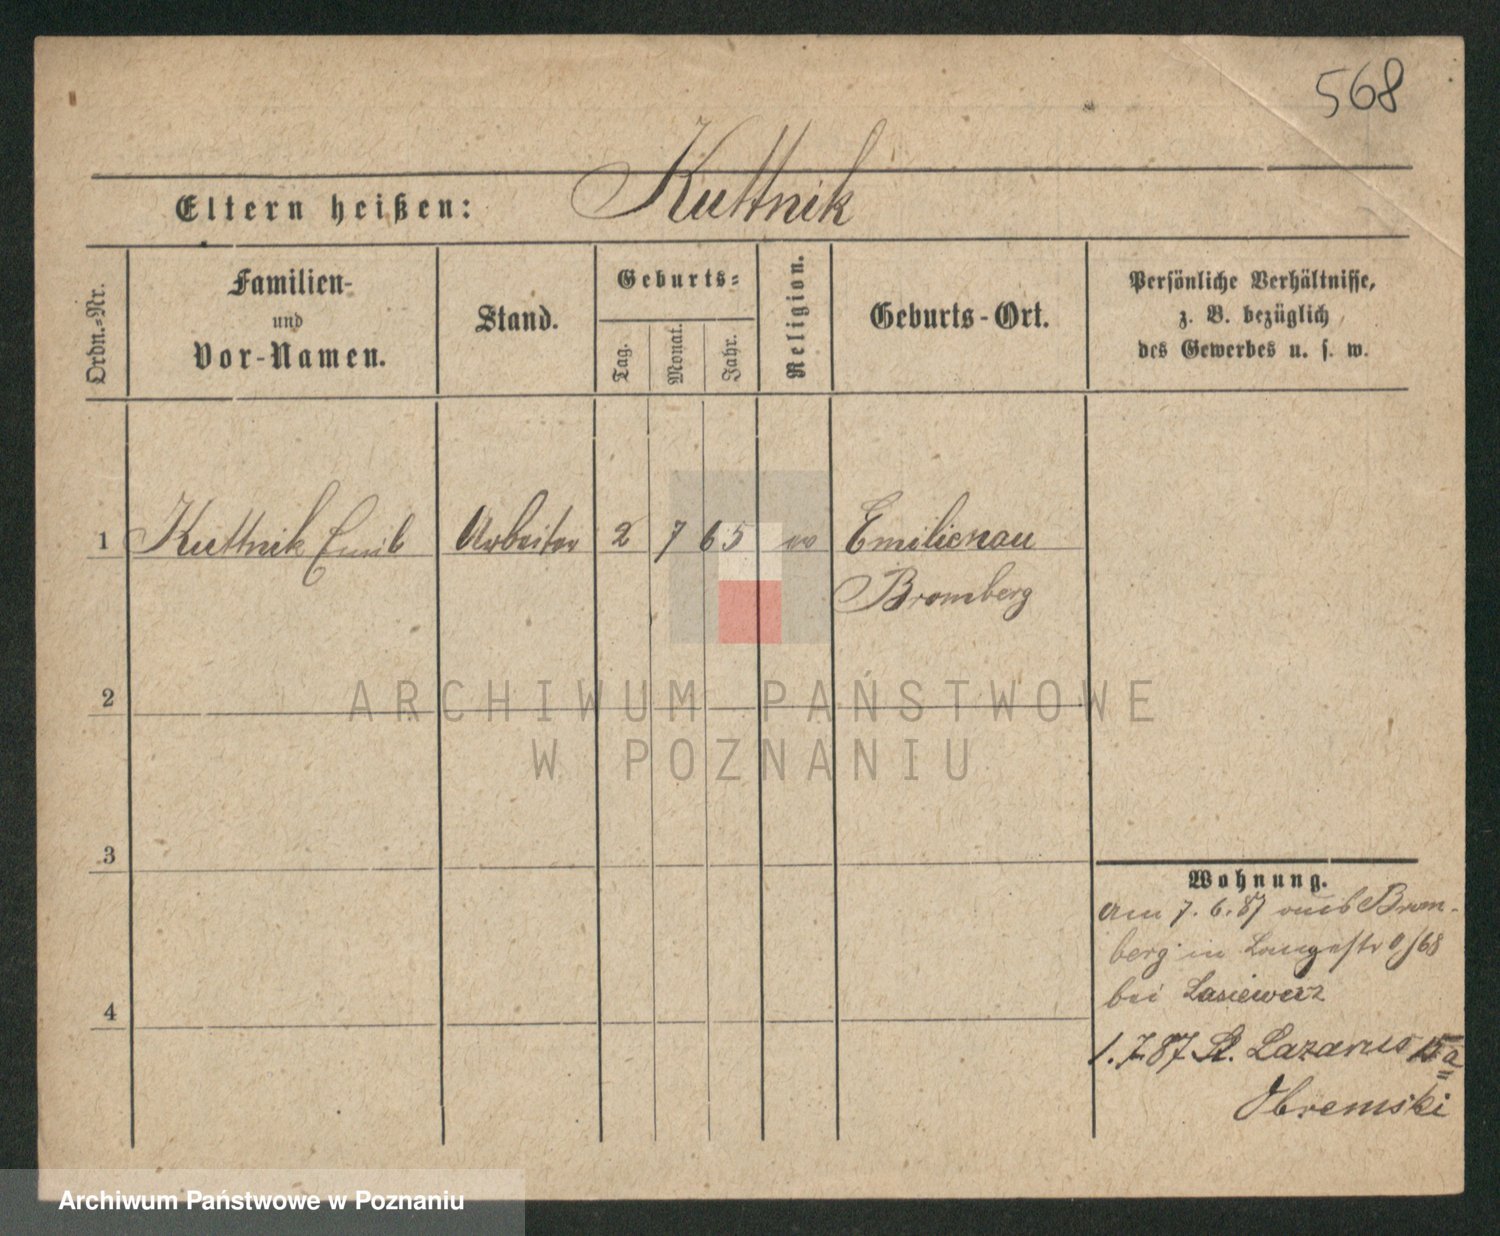 568
Eltern heißen: Kuttnik
Ordn.-Nr.
Familien-
und
Vor-Namen.
Stand.
Geburts-
Tag.
Monat.
Jahr.
Religion.
Geburts-Ort.
Persönliche Verhältnisse,
z. B. bezüglich
des Gewerbes u. s. w.
1 Kuttnik Emil Arbeiter 2 7 65 Emilienau
Bromberg
2
ARCHIWUM PAŃSTWOWE
W POZNANIU
3
Wohnung.
am 7. 6. 87 aus Brom-
berg in Langestr 9/68
bei Lasiewicz
4
1. 7. 87 St. Lazarus 15a
Obremski
Archiwum Państwowe w Poznaniu